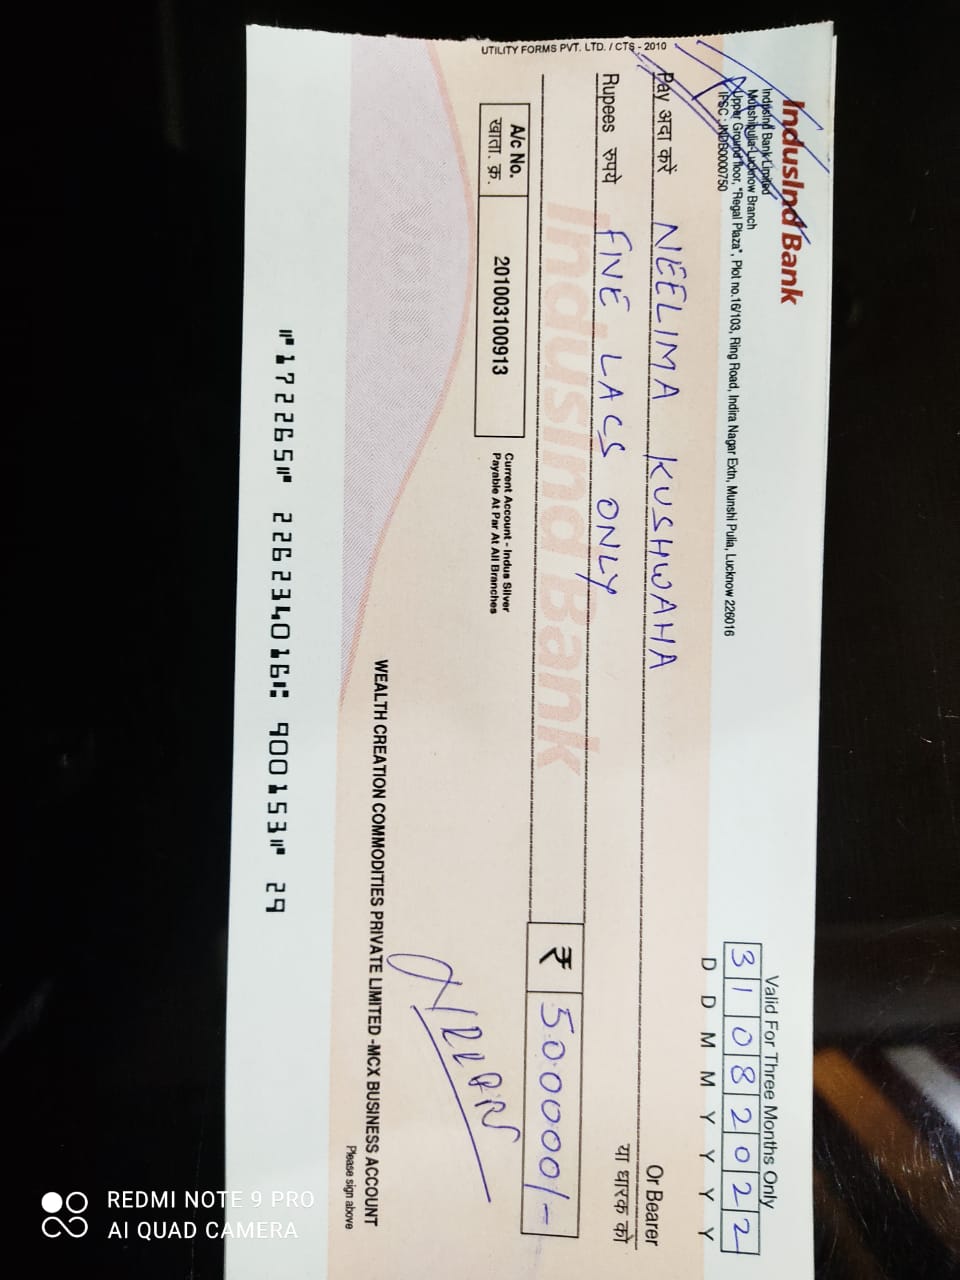 IndusInd Bank
IndusInd Bank Limited
Munshipulia-Lucknow Branch
Upper Ground floor, "Regal Plaza", Plot no.16/103, Ring Road, Indira Nagar Extn, Munshi Pulia, Lucknow 226016
IFSC : INDB0000750
Valid For Three Months Only
31082022
D D M M Y Y Y Y
Pay अदा करें NEELIMA KUSHWAHA Or Bearer
या धारक को
Rupees रुपये FIVE LACS ONLY
₹ 500000/-
A/c No.
खाता. क्र.
201003100913
Current Account - Indus Silver
Payable At Par At All Branches
VOID
WEALTH CREATION COMMODITIES PRIVATE LIMITED -MCX BUSINESS ACCOUNT
Please sign above
UTILITY FORMS PVT. LTD. / CTS - 2010
IndusInd Bank
⑈172265⑈ 226234016⑆ 900153⑈ 29
REDMI NOTE 9 PRO
AI QUAD CAMERA